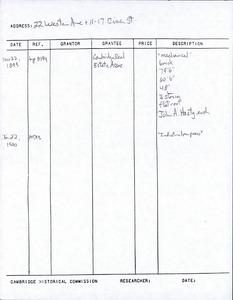 ADDRESS: 22 Western Ave + 11-17 River St
DATE REF. GRANTOR GRANTEE PRICE DESCRIPTION
Nov 22, 1899 Cambridge Real Estate Assoc "mechanical"
brick
48'
3 stories
flat roof
John A. Hasty, arch
Jan 22, 1900
CAMBRIDGE HISTORICAL COMMISSION RESEARCHER: DATE: